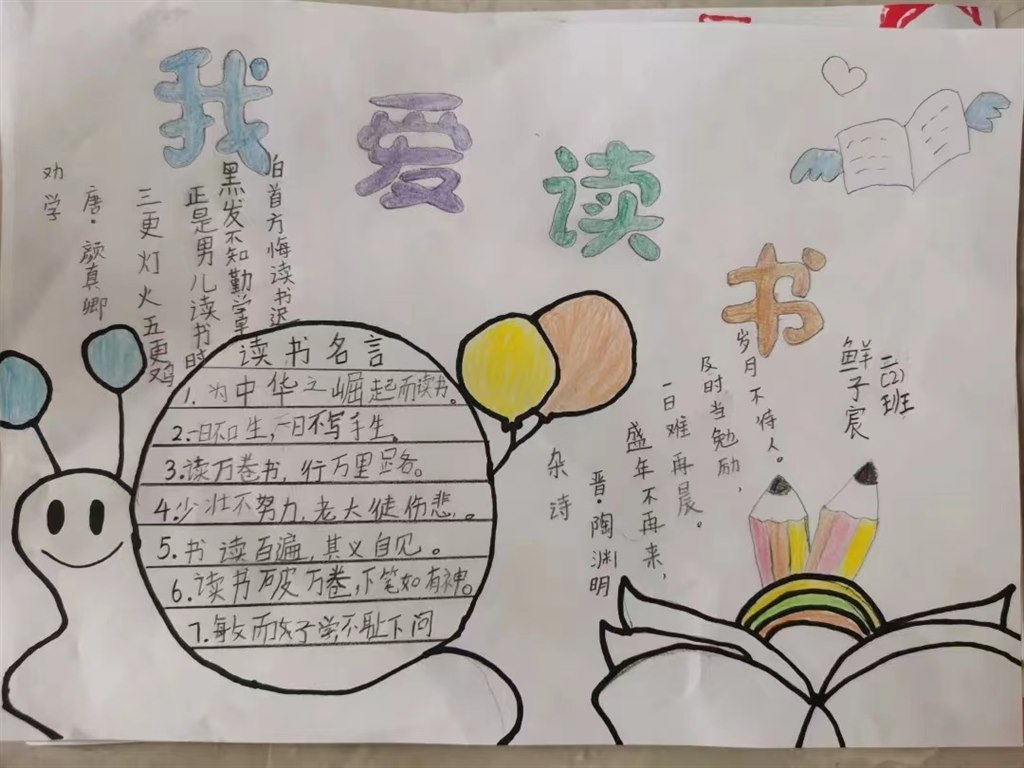 我爱读书
劝学
唐·颜真卿
三更灯火五更鸡
正是男儿读书时
黑发不知勤学早
白首方悔读书迟
读书名言
1.为中华之崛起而读书。
2.一日不口生,一日不写手生。
3.读万卷书,行万里路。
4.少壮不努力,老大徒伤悲。
5.书读百遍,其义自见。
6.读书破万卷,下笔如有神。
7.敏而好学不耻下问
杂诗
晋·陶渊明
盛年不再来,
一日难再晨。
及时当勉励,
岁月不待人。
二(2)班
鲜子宸